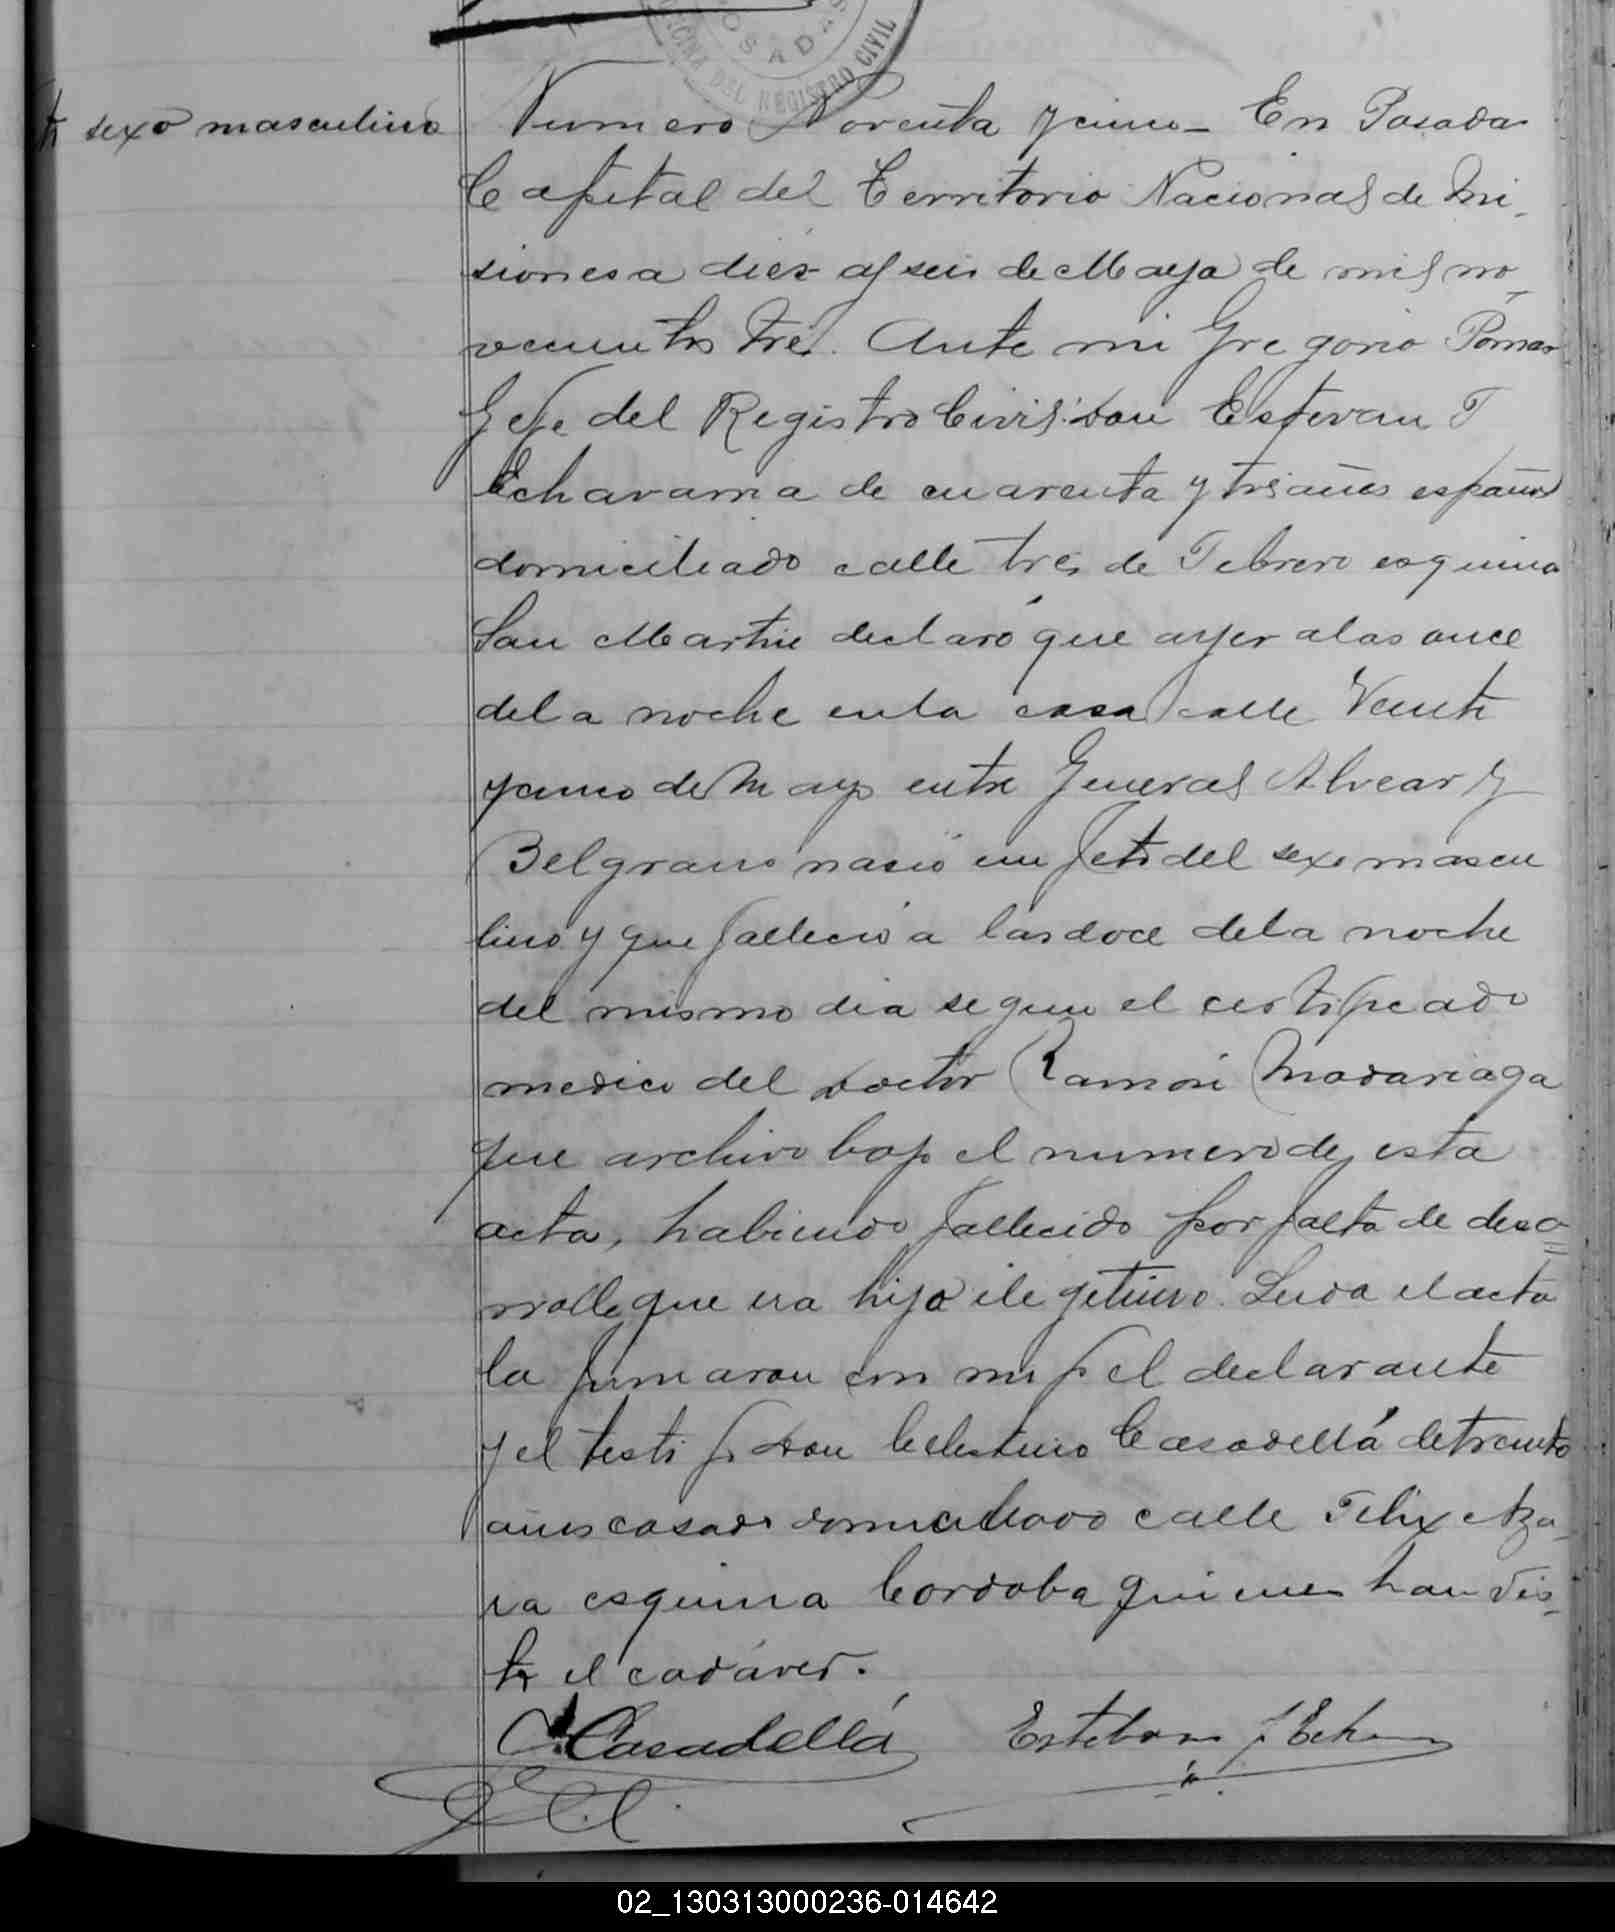 POSADAS
OFICINA DEL REGISTRO CIVIL
sexo masculino
Numero Noventa y cinco - En Posadas
Capital del Territorio Nacional de Mi-
siones a diez y seis de Mayo de mil no-
vecientos tres. Ante mi Gregorio Pomar
Gefe del Registro Civil: don Estevan J
Echavarria de cuarenta y tres años español
domiciliado calle tres de Febrero esquina
San Martin declaró que ayer a las once
de la noche en la casa calle Veinte
y cinco de Mayo entre General Alvear y
Belgrano nació un feto del sexo mascu
lino y que fallecio a las doce de la noche
del mismo dia segun el certificado
medico del doctor Ramón Madariaga
que archivo bajo el numero de esta
acta, habiendo fallecido por falta de desa=
rrollo que era hijo ilegitimo. Leida el acta
la firmaron con migo el declarante
y el testigo don Celestino Casadellá de treinta
años casado domiciliado calle Felix Aza-
ra esquina Cordoba quienes han vis-
to el cadáver.
C. Casadellá Esteban J Echa
02_130313000236-014642